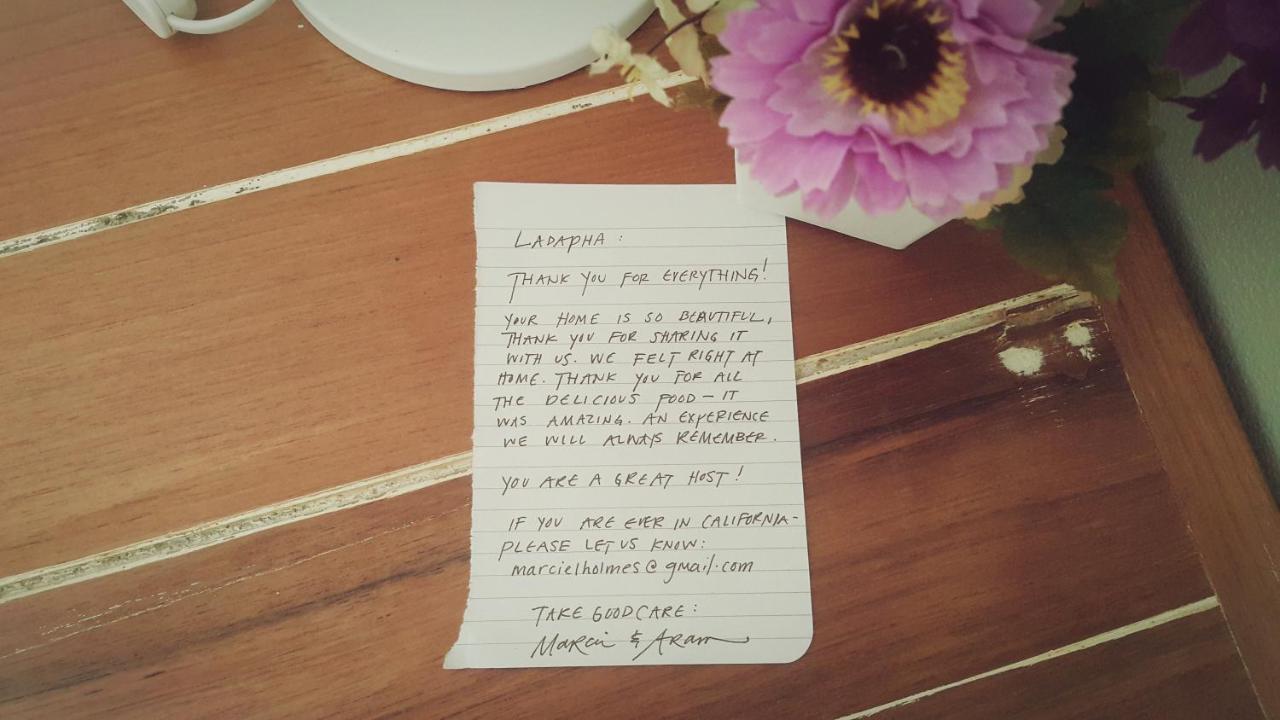 LADAPHA :
THANK YOU FOR EVERYTHING!
YOUR HOME IS SO BEAUTIFUL,
THANK YOU FOR SHARING IT
WITH US. WE FELT RIGHT AT
HOME. THANK YOU FOR ALL
THE DELICIOUS FOOD – IT
WAS AMAZING. AN EXPERIENCE
WE WILL ALWAYS REMEMBER.
YOU ARE A GREAT HOST!
IF YOU ARE EVER IN CALIFORNIA-
PLEASE LET US KNOW:
marcielholmes@gmail.com
TAKE GOOD CARE:
Marci & Aram